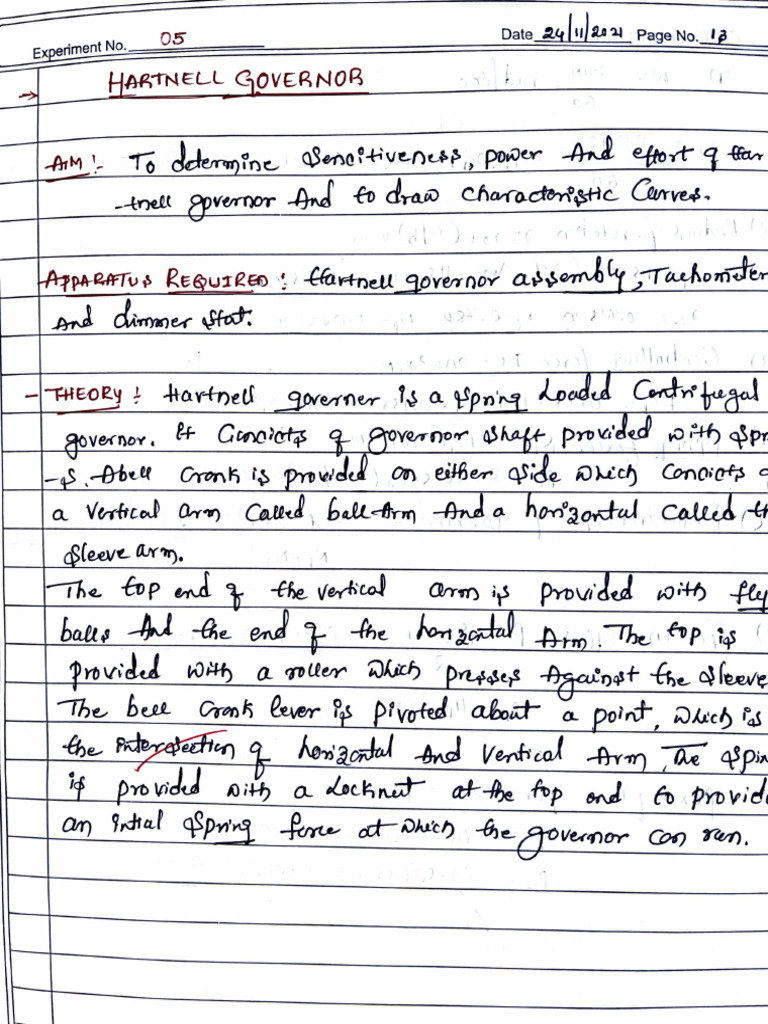 Experiment No. 05 Date 24/11/2021 Page No. 13
→ HARTNELL GOVERNOR
AIM :- To determine sensitiveness, power And effort of Har
-tnell governor And to draw characteristic Curves.
APPARATUS REQUIRED : Hartnell governor assembly, Tachometer
And dimmer stat.
- THEORY : Hartnell governer is a spring Loaded Centrifugal
governor. It Concicts of governor shaft provided with spr
-s. A bell Cronk is provided on either side which Concicts
a vertical arm Called ball-Arm And a horizontal Called th
sleeve arm.
The top end of the vertical arm is provided with fly
balls And the end of the horizontal Arm. The top is
provided with a roller which presses Against the sleeve
The bell Cronk lever is pivoted about a point, which is
the intersection of horizontal And vertical Arm, The spin
is provided with a Locknut at the top end to provid
an intial spring force at which the governor can run.